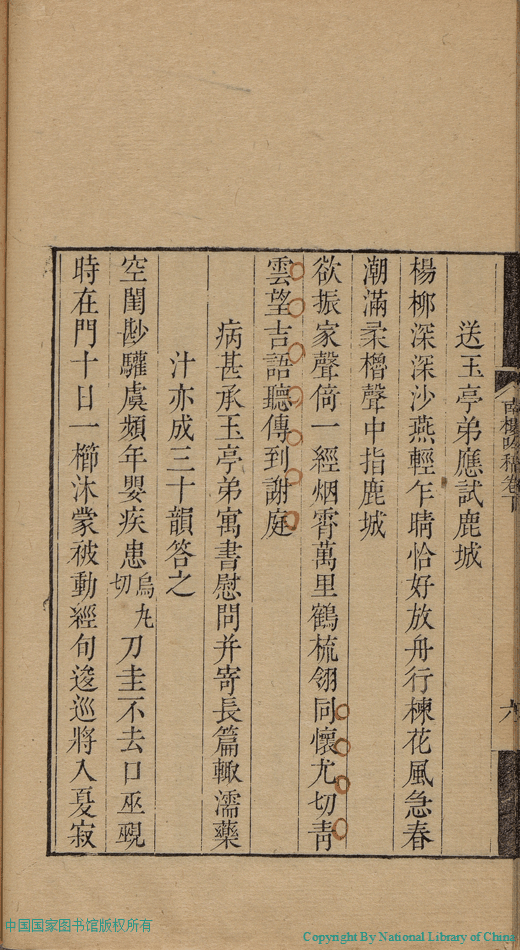 南樓吟稿卷下
六
送玉亭弟應試鹿城
楊柳深深沙燕輕乍晴恰好放舟行楝花風急春
潮滿柔櫓聲中指鹿城
欲振家聲倚一經烟霄萬里鶴梳翎同懷尤切青
雲望吉語聽傳到謝庭
病甚承玉亭弟寓書慰問并寄長篇輙濡藥
汁亦成三十韻答之
空閨尠驩虞頻年嬰疾患烏丸切刀圭不去口巫覡
時在門十日一櫛沐蒙被動經旬逡巡將入夏寂
中国国家图书馆版权所有
Copyright By National Library of China